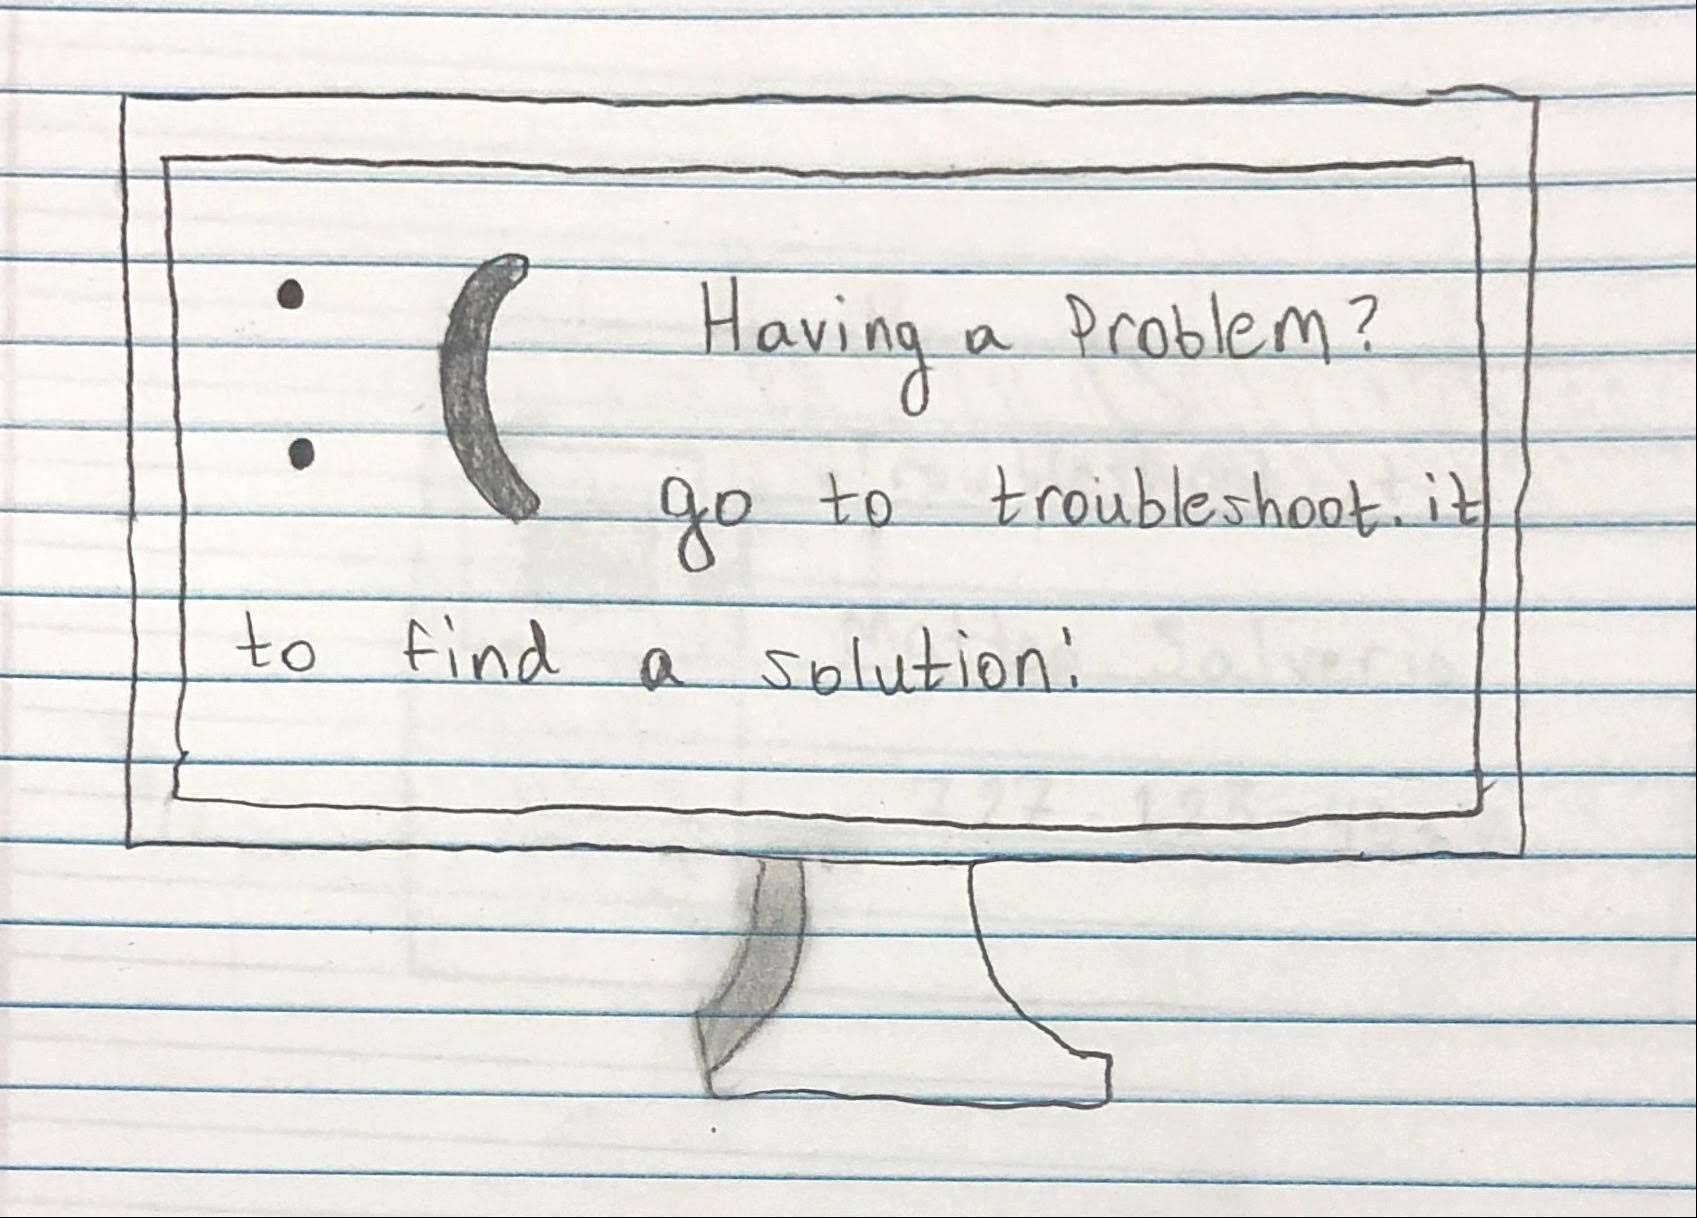 :(
Having a Problem?
go to troubleshoot.it
to find a solution!